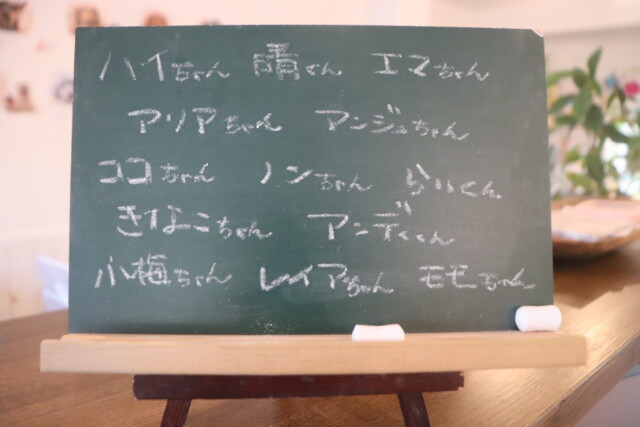 ハイちゃん 晴くん エマちゃん
アリアちゃん アンジュちゃん
ココちゃん ノンちゃん らいくん
きなこちゃん アンディくん
小梅ちゃん レイアちゃん モモちゃん